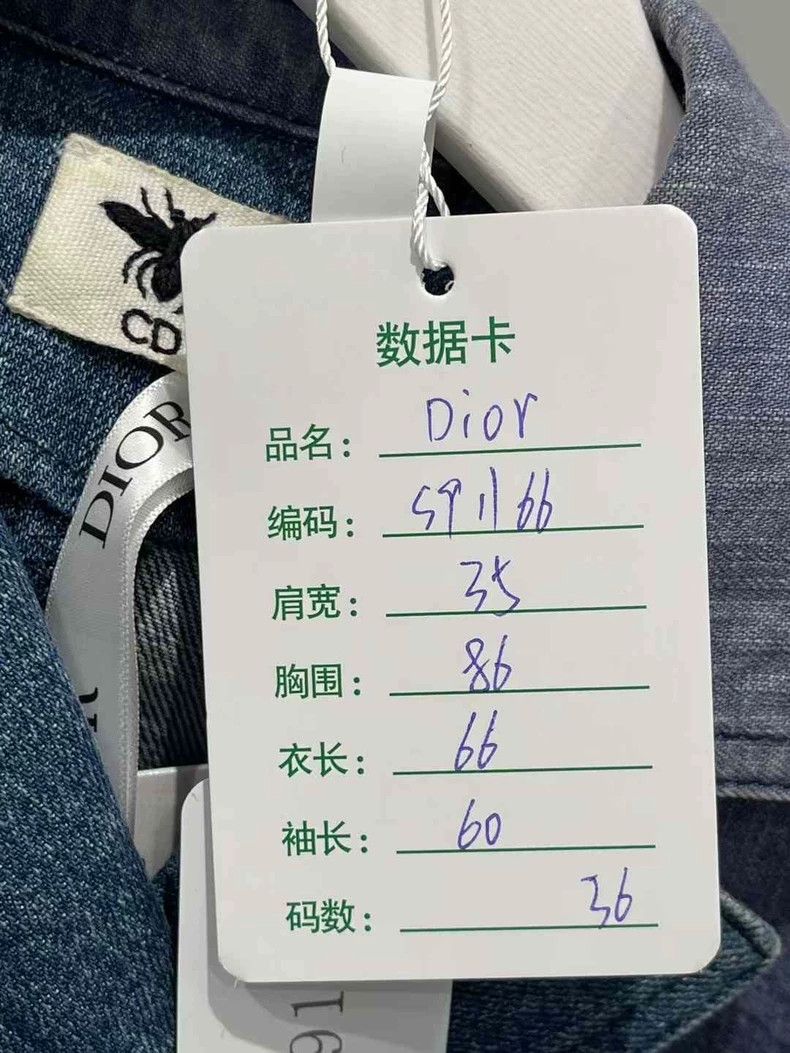 8
DIOR
数据卡
品名: Dior
编码: 591166
肩宽: 35
胸围: 86
衣长: 66
袖长: 60
码数: 36
R
91